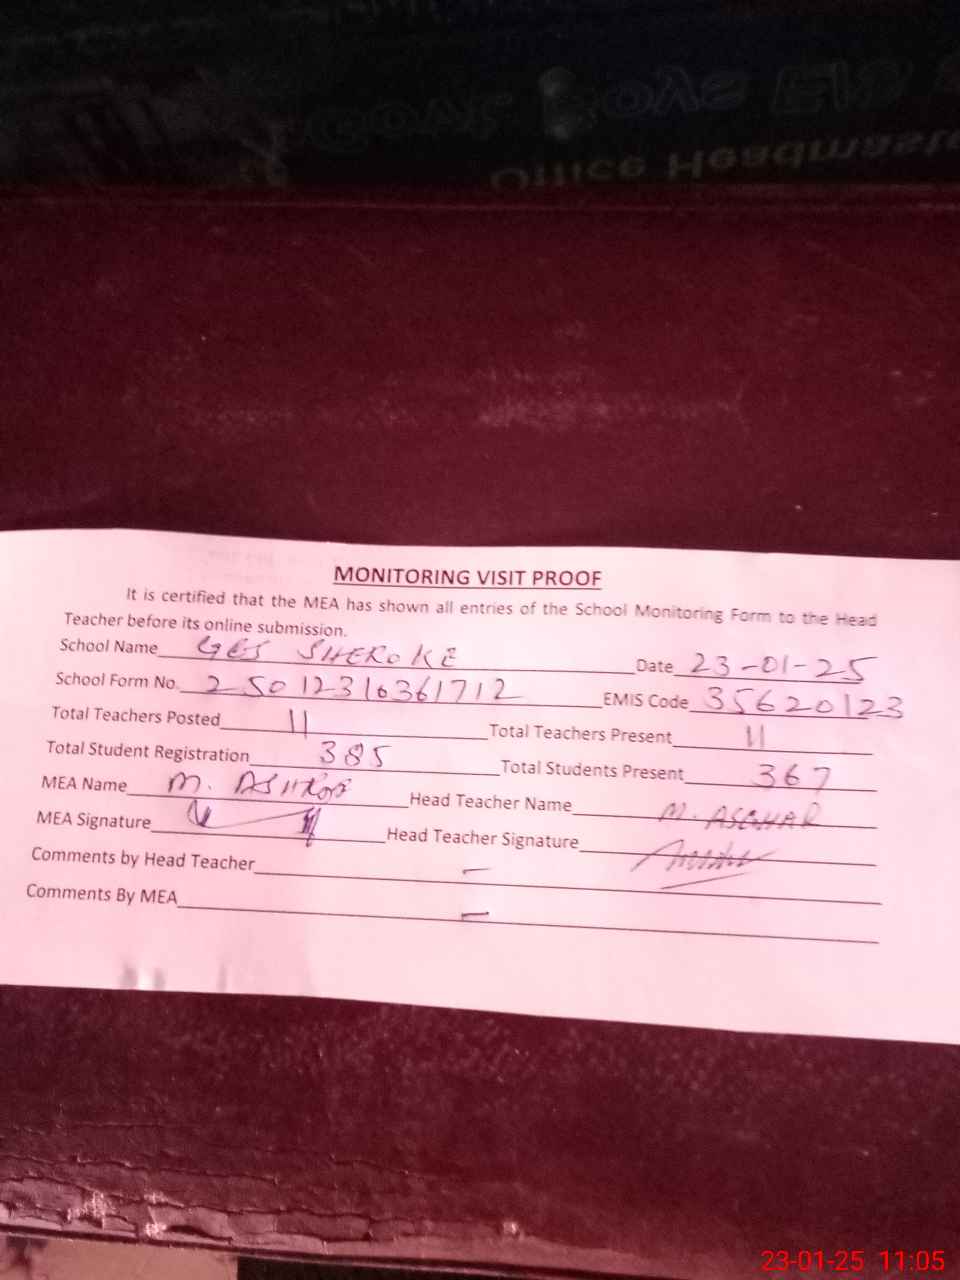 Office Headmaste
MONITORING VISIT PROOF
It is certified that the MEA has shown all entries of the School Monitoring Form to the Head
Teacher before its online submission.
School Name GES SHEROKE Date 23-01-25
School Form No. 25012316361712 EMIS Code 35620123
Total Teachers Posted 11 Total Teachers Present 11
Total Student Registration 385 Total Students Present 367
MEA Name M. ASHRAF Head Teacher Name M. ASGHAR
MEA Signature Head Teacher Signature
Comments by Head Teacher —
Comments By MEA —
23-01-25 11:05